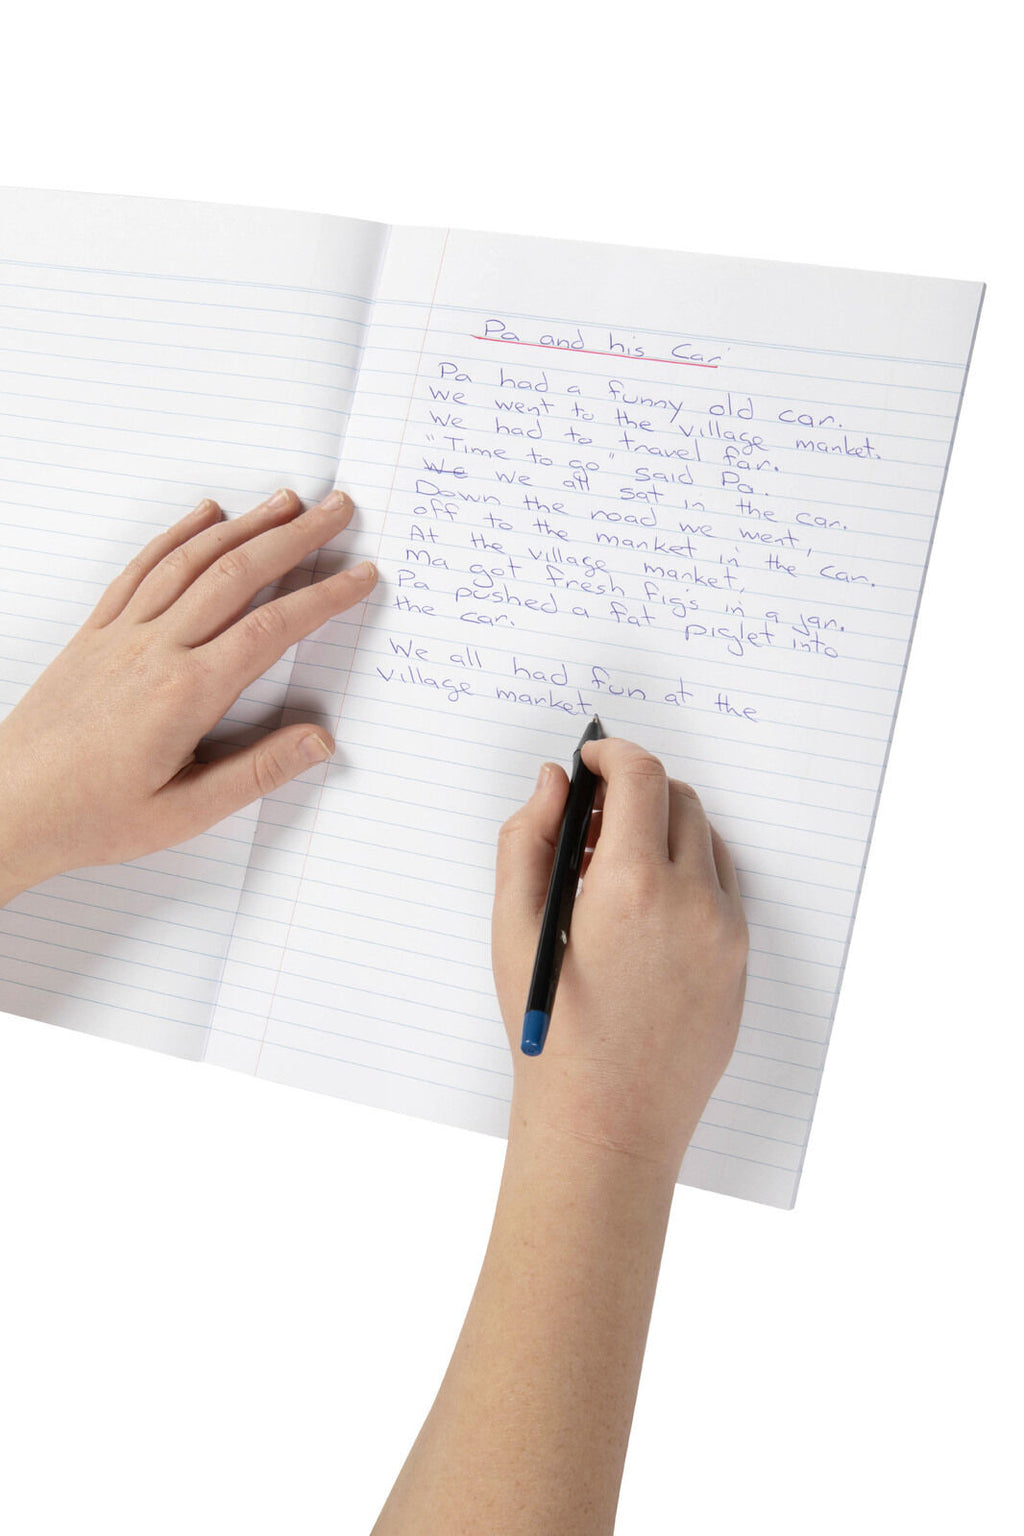 Pa and his Car
Pa had a funny old car.
we went to the village market.
we had to travel far.
"Time to go" said Pa.
We we all sat in the car.
Down the road we went,
off to the market in the car.
At the village market,
Ma got fresh figs in a jar.
Pa pushed a fat piglet into
the car.
We all had fun at the
village market.